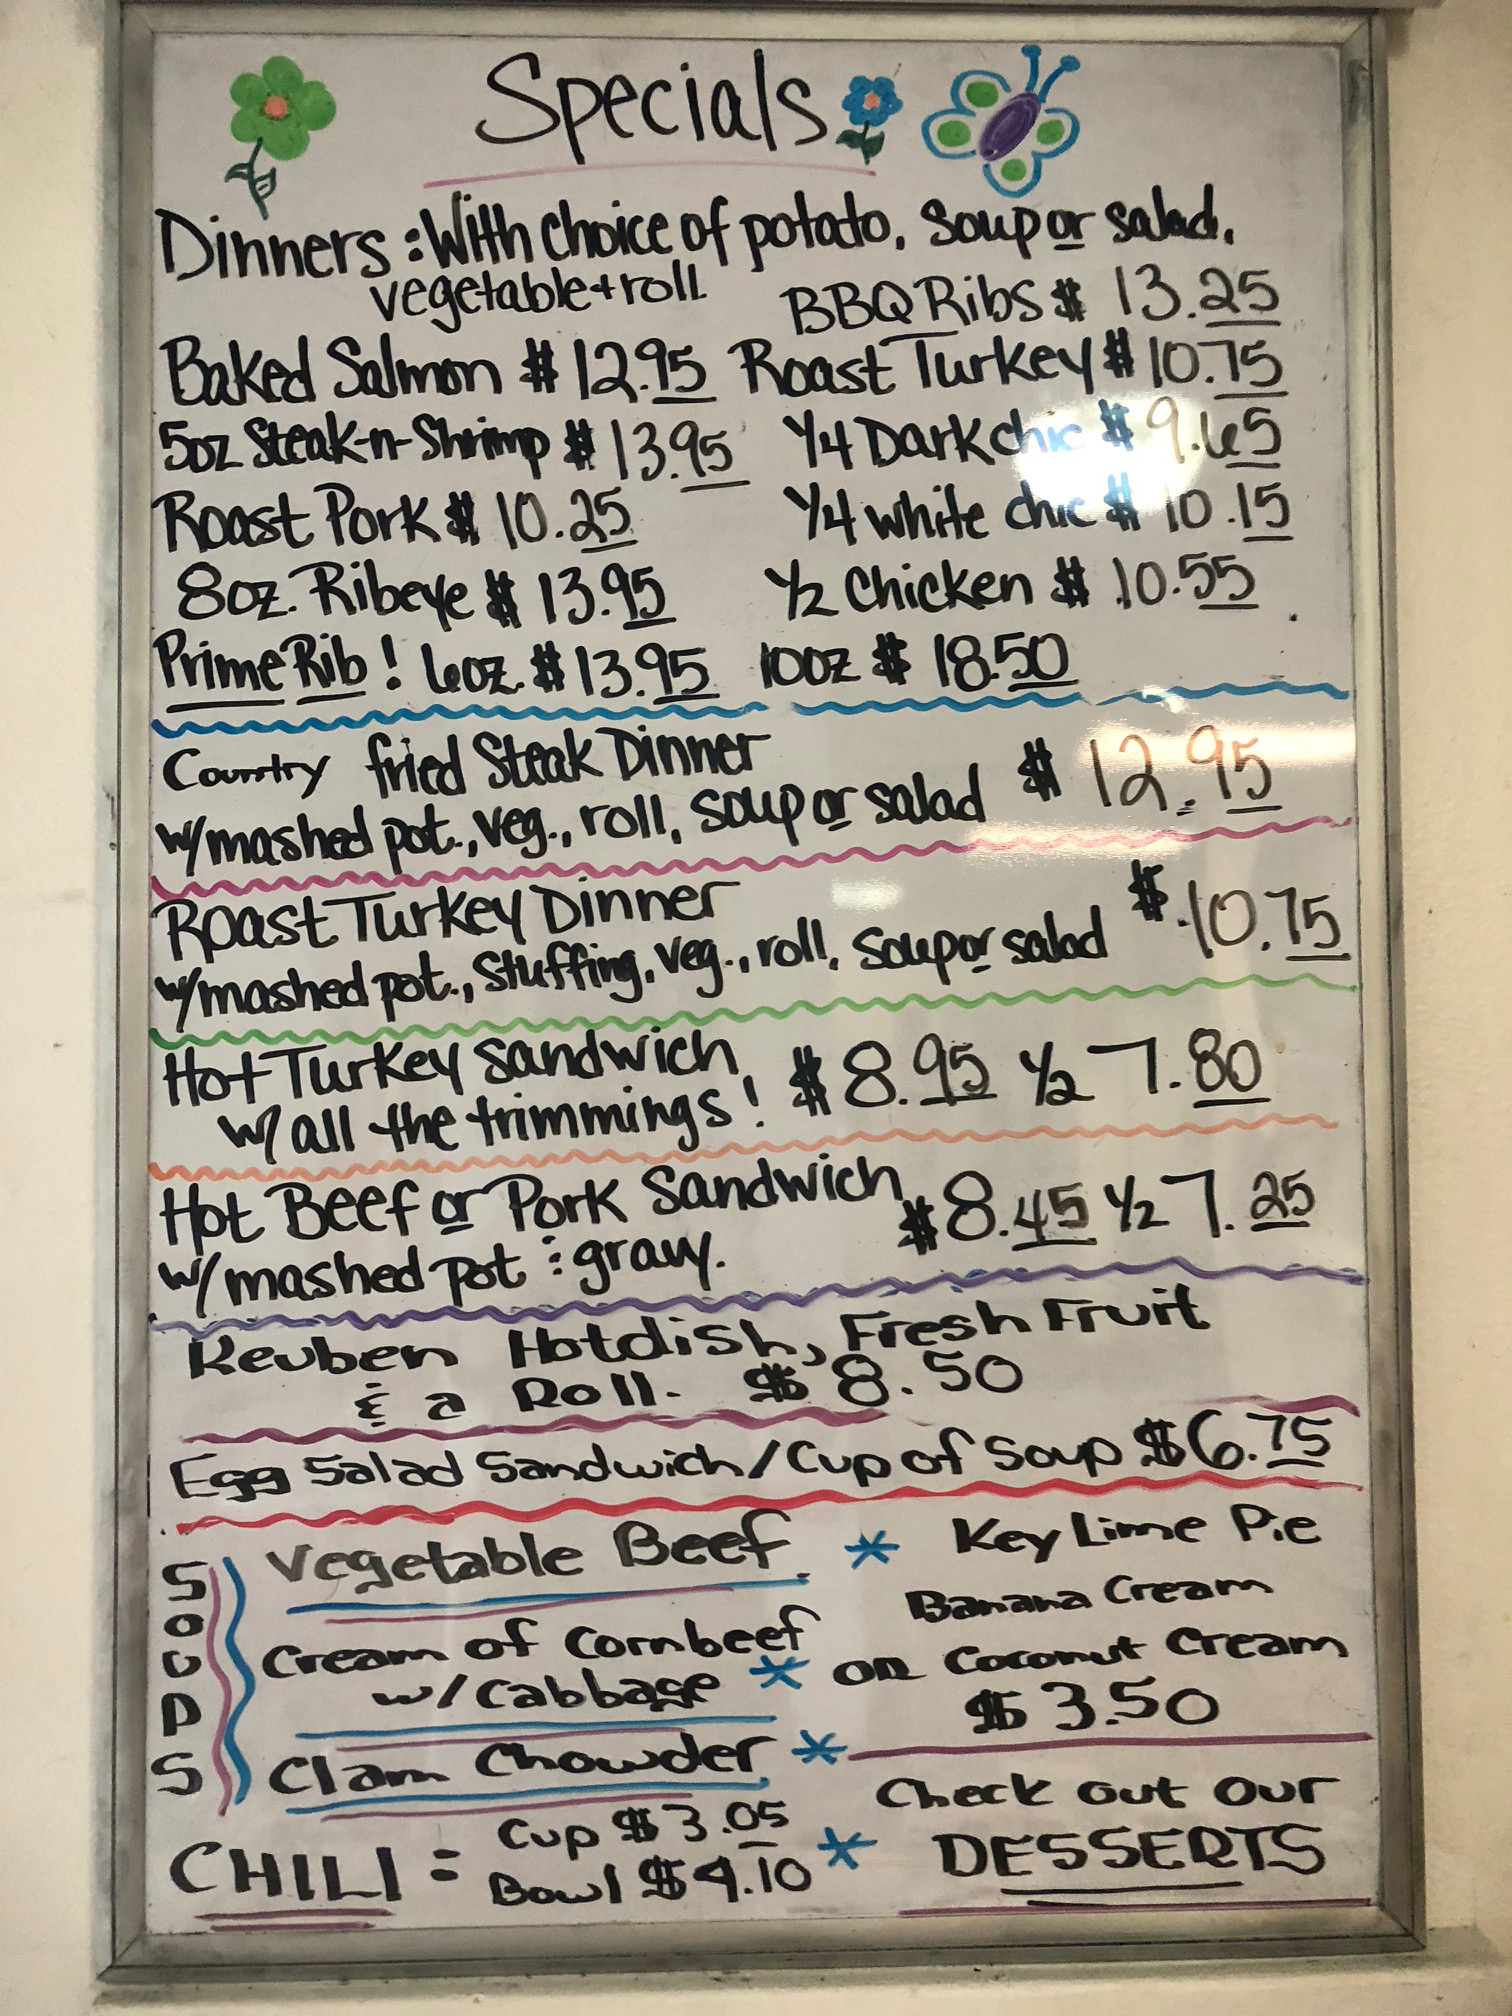 Specials
Dinners: With choice of potato, soup or salad,
vegetable + roll
BBQ Ribs $ 13.25
Baked Salmon $ 12.95 Roast Turkey $ 10.75
5oz Steak-n-Shrimp $ 13.95 1/4 Dark chic $ 9.65
Roast Pork $ 10.25 1/4 white chic $ 10.15
8oz. Ribeye $ 13.95 1/2 Chicken $ 10.55
Prime Rib! 6oz. $ 13.95 10oz $ 18.50
Country fried Steak Dinner
w/mashed pot., veg., roll, soup or salad $ 12.95
Roast Turkey Dinner
w/mashed pot., stuffing, veg., roll, soup or salad $ 10.75
Hot Turkey Sandwich
w/ all the trimmings! $ 8.95 1/2 7.80
Hot Beef or Pork Sandwich
w/ mashed pot : gravy. $ 8.45 1/2 7.25
Reuben Hotdish, Fresh Fruit
& a Roll. $ 8.50
Egg Salad Sandwich/Cup of Soup $6.75
SOUPS
Vegetable Beef
Cream of Cornbeef
w/ Cabbage
Clam Chowder
CHILI = Cup $3.05
Bowl $4.10
* Key Lime Pie
Banana Cream
* OR Coconut Cream
$3.50
*
Check out our
* DESSERTS